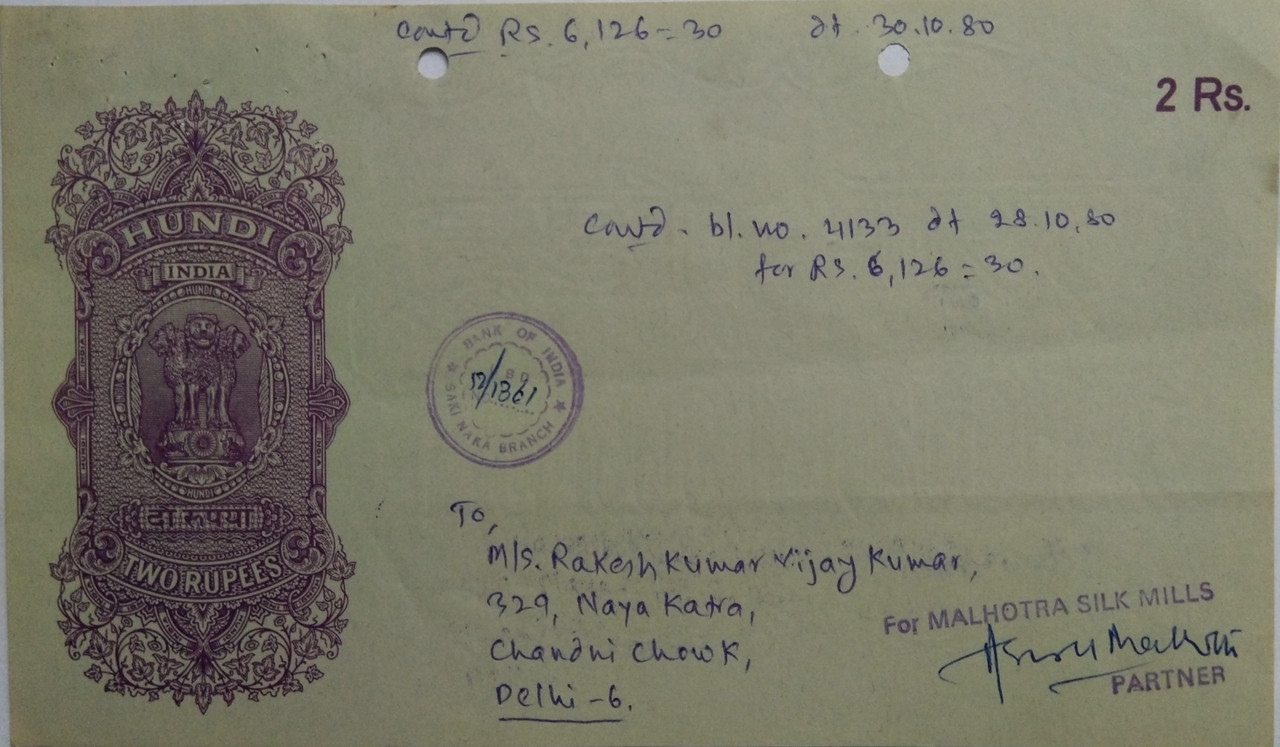 contd Rs. 6,126=30 dt. 30.10.80
2 Rs.
HUNDI
INDIA
HUNDI
contd. bl. no. 4133 dt 28.10.80
for Rs. 6,126=30.
BANK OF INDIA
SAKI NAKA BRANCH
HUNDI
TWO RUPEES
To,
M/s. Rakesh Kumar Vijay Kumar,
329, Naya Katra,
Chandni Chowk,
Delhi-6.
For MALHOTRA SILK MILLS
PARTNER